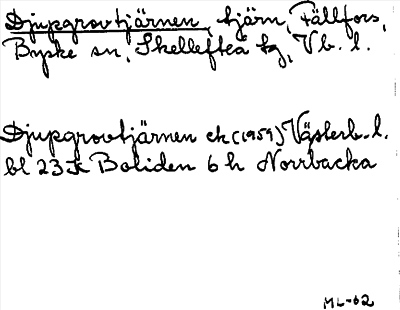 Djupgrovtjärnen, tjärn, Fällfors,
Byske sn, Skellefteå tg, Vb. l.
Djupgrovtjärnen ek (1959) Västerb. l.
bl 23 K Boliden 6 h Norrbacka
ML-62